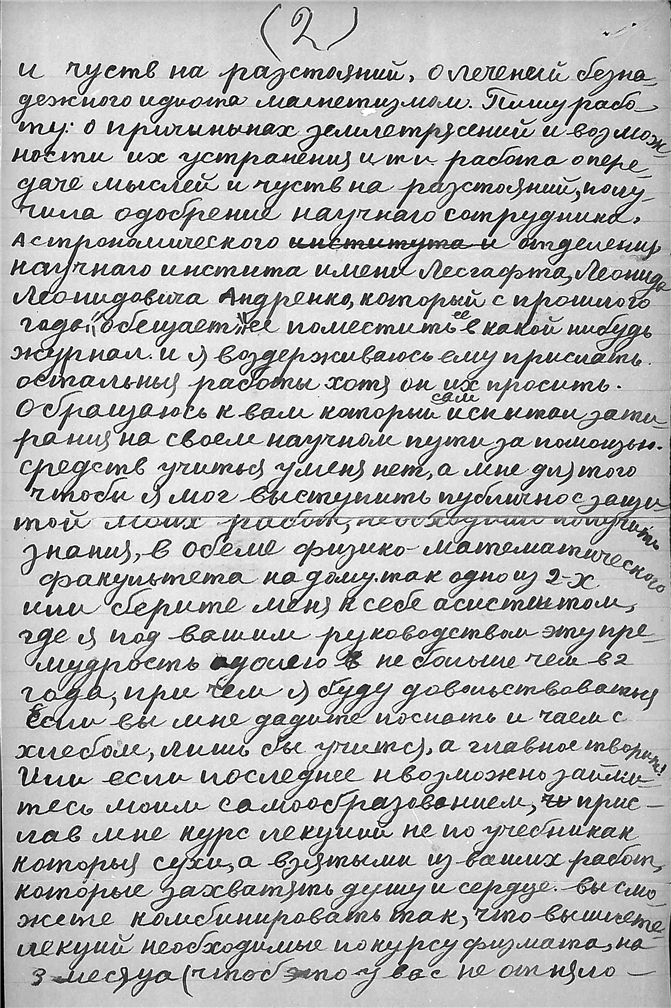 (2)
и чуств на разстояний, о леченый безна-
дежного идиота магнетизмом. Пишу рабо-
ту: о причиныхах землетрясений и возмож-
ности их устранения и ти работа о пере-
даче мыслей и чуств на разстояний, полу-
чила одобрение научнаго сотрудника,
Астрономического института и отделения
научнаго инстита имени Лесгафта, Леонида
Леонидовича Андренко, который с прошлого
года, обещает ее поместить ее в какой нибудь
журнал. и я воздерживаюсь ему прислать
остальныя работы хотя он их просить.
Обращаюсь к вам который сам испытал зати-
рания на своем научном пути за помощью.
средств учиться у меня нет, а мне для того
чтоби я мог выступить публично с защи-
той моих работ, необходими получить
знания, в обеме физико-математического
факультета на дому. так одно из 2-х
или берите меня к себе асистентом,
где я под вашим руководством эту пре-
мудрость одолею в не больше чем в 2
года, при чем я буду довольствоваться
если вы мне дадите поспать и чаем с
хлебом, лишь бы учится, а главное творить!
Или если последнее нвозможно займи-
тесь моим самообразованием, чи прис-
лав мне курс лекций не по учебникам
которыя сухи, а взятыми из ваших работ,
которые захватять душу и сердце. вы смо-
жете комбинировать так, что вышлете
лекций необходимые по курсу физмата, на
3 месяца (чтоб это у вас не отняло-